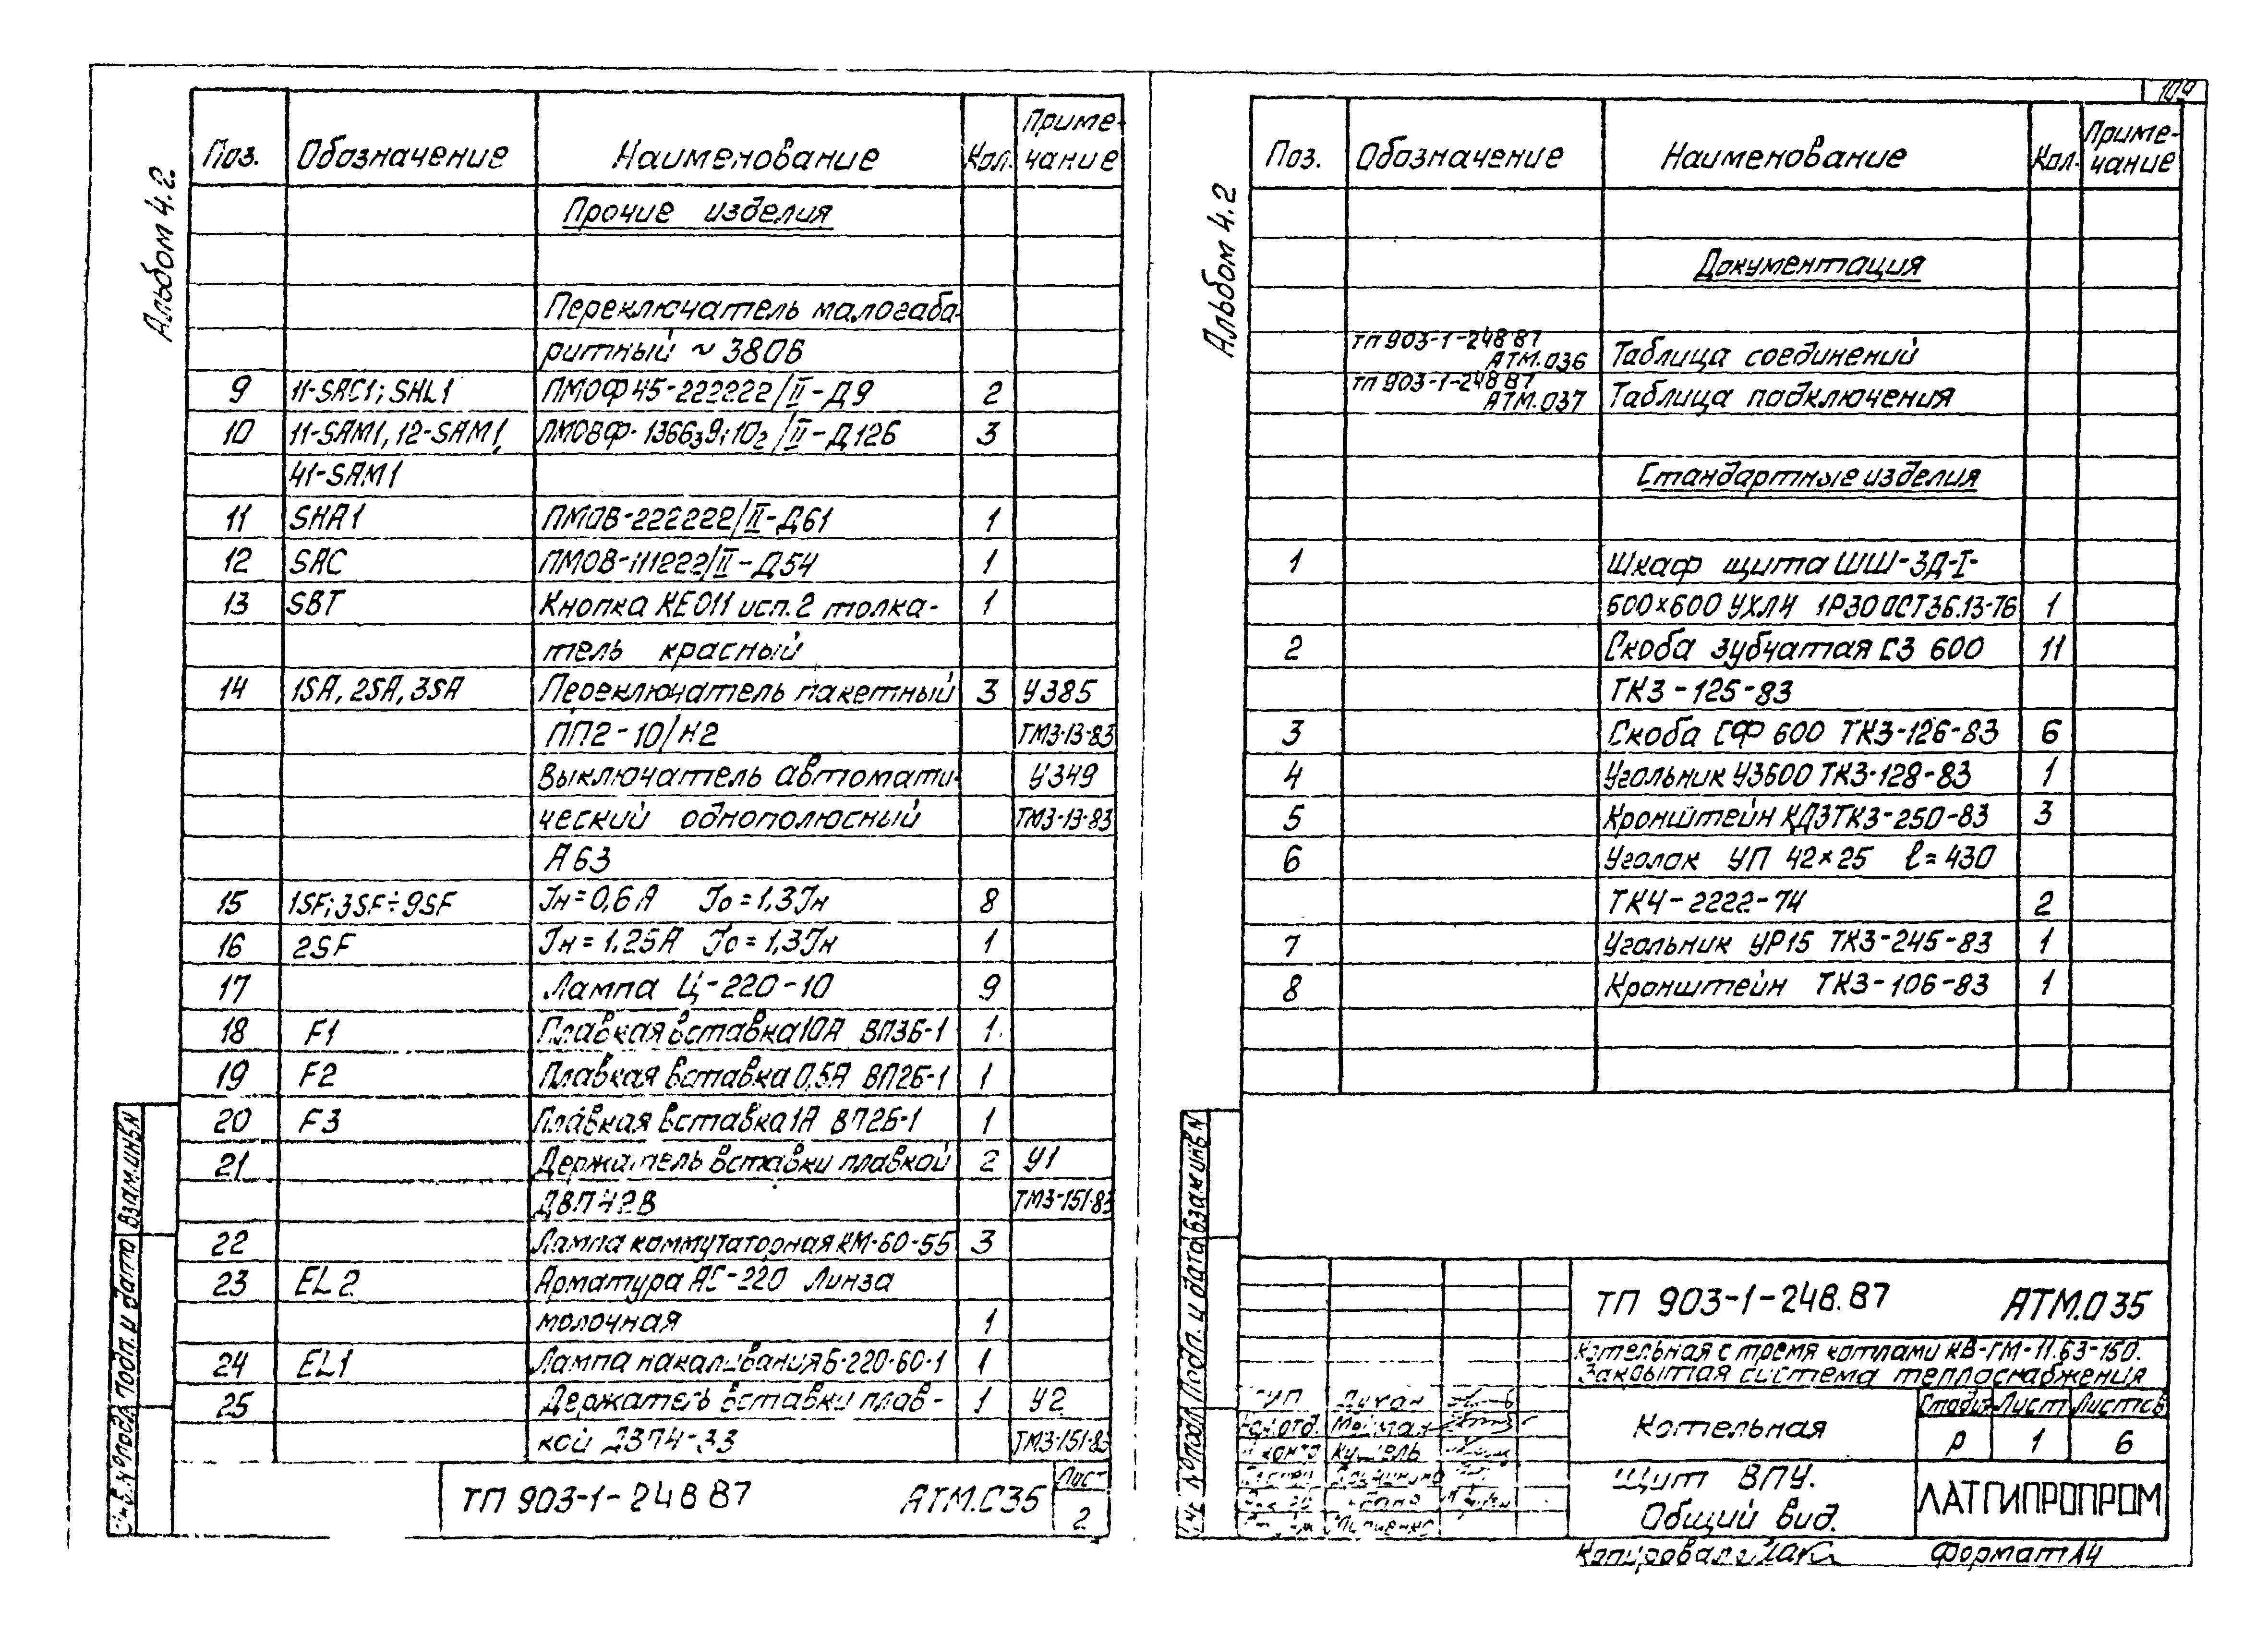 Альбом 4.2
Поз. Обозначение Наименование Кол. Приме-чание
Прочие изделия
Переключатель малогаба-
ритный ~ 380В
9 11-SAC1; SHL1 ПМОФ45-222222/II-Д9 2
10 11-SAM1, 12-SAM1, ПМОВФ-1366₃9;10₂/II-Д126 3
41-SAM1
11 SHA1 ПМОВ-222222/II-Д61 1
12 SAC ПМОВ-111222/II-Д54 1
13 SBT Кнопка КЕ011 исп.2 толка- 1
тель красный
14 1SA, 2SA, 3SA Переключатель пакетный 3 У385
ПП2-10/Н2 ТМ3-13-83
Выключатель автомати- У349
ческий однополюсный ТМ3-13-83
А63
15 1SF; 3SF÷9SF Iн=0,6А Iо=1,3Iн 8
16 2SF Iн=1.25А Iо=1,3Iн 1
17 Лампа Ц-220-10 9
18 F1 Плавкая вставка 10А ВП3Б-1 1
19 F2 Плавкая вставка 0,5А ВП2Б-1 1
20 F3 Плавкая вставка 1А ВП2Б-1 1
21 Держатель вставки плавкой 2 У1
ДВП42В ТМ3-151-83
22 Лампа коммутаторная КМ-60-55 3
23 EL2 Арматура АС-220 Линза
молочная 1
24 EL1 Лампа накаливания Б-220-60-1 1
25 Держатель вставки плав- 1 У2
кой ТМ3-151-83
ТП 903-1-248 87 АТМ.035 Лист
2
Взам.инв.N
Подп. и дата
109
Альбом 4.2
Поз. Обозначение Наименование Кол. Приме-чание
Документация
ТП 903-1-248 87
АТМ.036 Таблица соединений
ТП 903-1-248 87
АТМ.037 Таблица подключения
Стандартные изделия
1 Шкаф щита ШШ-3Д-I-
600×600 УХЛ4 1Р30 ОСТ36.13-76 1
2 Скоба зубчатая СЗ 600 11
ТК3-125-83
3 Скоба СФ 600 ТК3-126-83 6
4 Угольник УЗ600 ТК3-128-83 1
5 Кронштейн КД3 ТК3-250-83 3
6 Уголок УП 42×25 ℓ=430
ТК4-2222-74 2
7 Угольник УР15 ТК3-245-83 1
8 Кронштейн ТК3-106-83 1
Взам инв N
Подп. и дата
ТП 903-1-248.87 АТМ.035
Котельная с тремя котлами КВ-ГМ-11.63-150.
Закрытая система теплоснабжения
ГИП
Нач.отд. Мейтан
Н контр
Котельная
Стадия Лист Листов
Р 1 6
Щит ВПУ.
Общий вид.
ЛАТГИПРОПРОМ
Копировал Формат А4